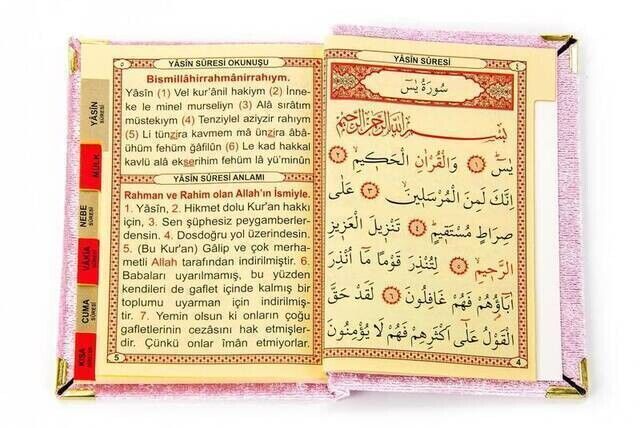 YÂSİN SÛRESİ
٤
سُورَةُ يٰسٓ
بِسْمِ اللّٰهِ الرَّحْمٰنِ الرَّحِيمِ
يٰسٓ ١ وَالْقُرْاٰنِ الْحَكِيمِ ٢
اِنَّكَ لَمِنَ الْمُرْسَلِينَ ٣ عَلٰى
صِرَاطٍ مُسْتَقِيمٍ ٤ تَنْزِيلَ الْعَزِيزِ
الرَّحِيمِ ٥ لِتُنْذِرَ قَوْمًا مَٓا اُنْذِرَ
اٰبَٓاؤُهُمْ فَهُمْ غَافِلُونَ ٦ لَقَدْ حَقَّ
الْقَوْلُ عَلٰٓى اَكْثَرِهِمْ فَهُمْ لَا يُؤْمِنُونَ
4
٥
YÂSİN SÛRESİ OKUNUŞU
Bismillâhirrahmânirrahıym.
Yâsîn (1) Vel kur'ânil hakiym (2) İnne-
ke le minel murseliyn (3) Alâ sırâtım
müstekıym (4) Tenziylel aziyzir rahıym
(5) Li tünzira kavmem mâ ünzira âbâ-
ühüm fehüm ğâfilûn (6) Le kad hakkal
kavlü alâ ekserihim fehüm lâ yü'minûn
YÂSİN SÛRESİ ANLAMI
Rahman ve Rahim olan Allah'ın İsmiyle.
1. Yâsîn, 2. Hikmet dolu Kur'an hakkı
için, 3. Sen şüphesiz peygamberler-
densin. 4. Dosdoğru yol üzerindesin.
5. (Bu Kur'an) Gâlip ve çok merha-
metli Allah tarafından indirilmiştir. 6.
Babaları uyarılmamış, bu yüzden
kendileri de gaflet içinde kalmış bir
toplumu uyarman için indirilmiş-
tir. 7. Yemin olsun ki onların çoğu
gafletlerinin cezâsını hak etmişler-
dir. Çünkü onlar îmân etmiyorlar.
5
YÂSİN
SÛRESİ
MÜLK
NEBE
SÛRESİ
VÂKIA
SÛRESİ
CUMA
SÛRESİ
KISA